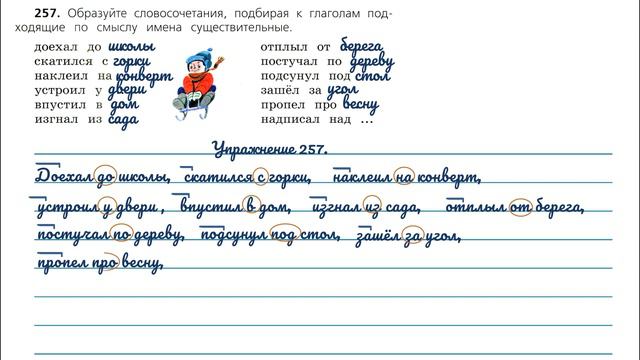 257. Образуйте словосочетания, подбирая к глаголам под-
ходящие по смыслу имена существительные.
доехал до школы
скатился с горки
наклеил на конверт
устроил у двери
впустил в дом
изгнал из сада
отплыл от берега
постучал по дереву
подсунул под стол
зашёл за угол
пропел про весну
надписал над ...
Упражнение 257.
Доехал до школы, скатился с горки, наклеил на конверт,
устроил у двери, впустил в дом, изгнал из сада, отплыл от берега,
постучал по дереву, подсунул под стол, зашёл за угол,
пропел про весну,